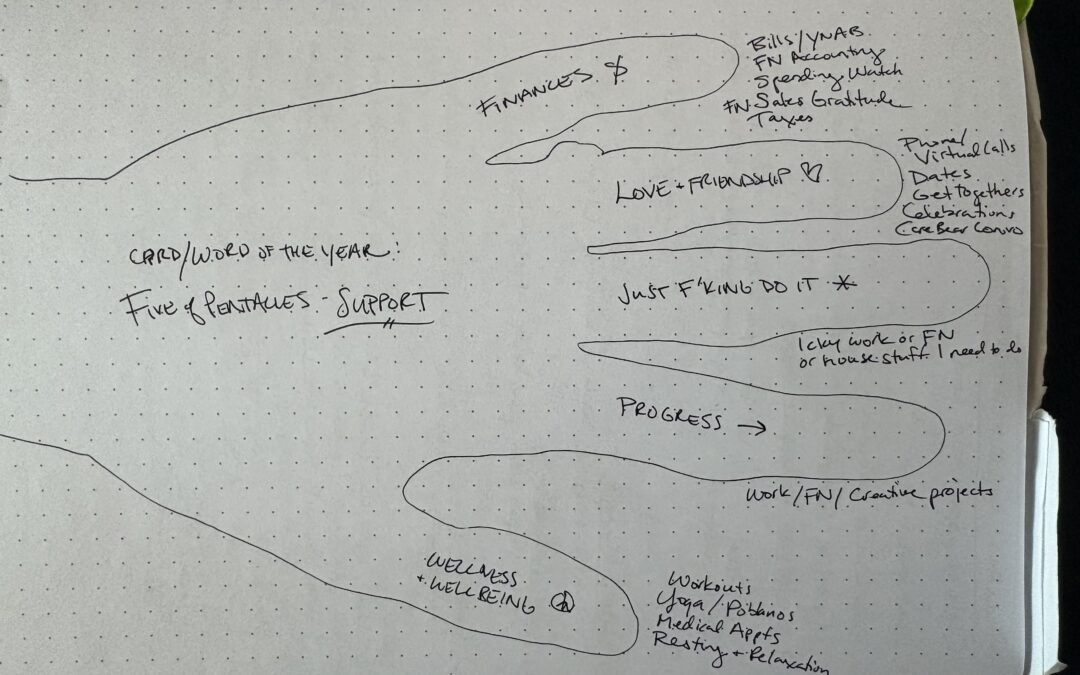 FINANCES $
Bills/YNAB
FN Accounting
Spending Watch
FN Sales Gratitude
Taxes
LOVE + FRIENDSHIP ♡
Phone/
Virtual Calls
Dates
Get Togethers
Celebrations
Care Bear Convo
CARD/WORD OF THE YEAR:
FIVE of PENTACLES - SUPPORT
JUST F'KING DO IT *
Icky work or FN
or house stuff I need to do
PROGRESS →
Work/FN/Creative projects
WELLNESS
+ WELLBEING ☮
Workouts
Yoga/
Medical Appts
Resting + Relaxation